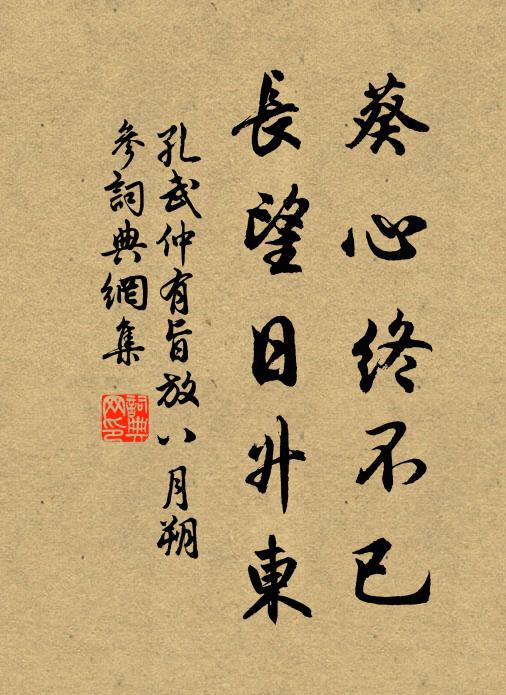 葵心終不已
長望日升東
孔武仲有旨放八月朔
參詞典網集
詞典网印